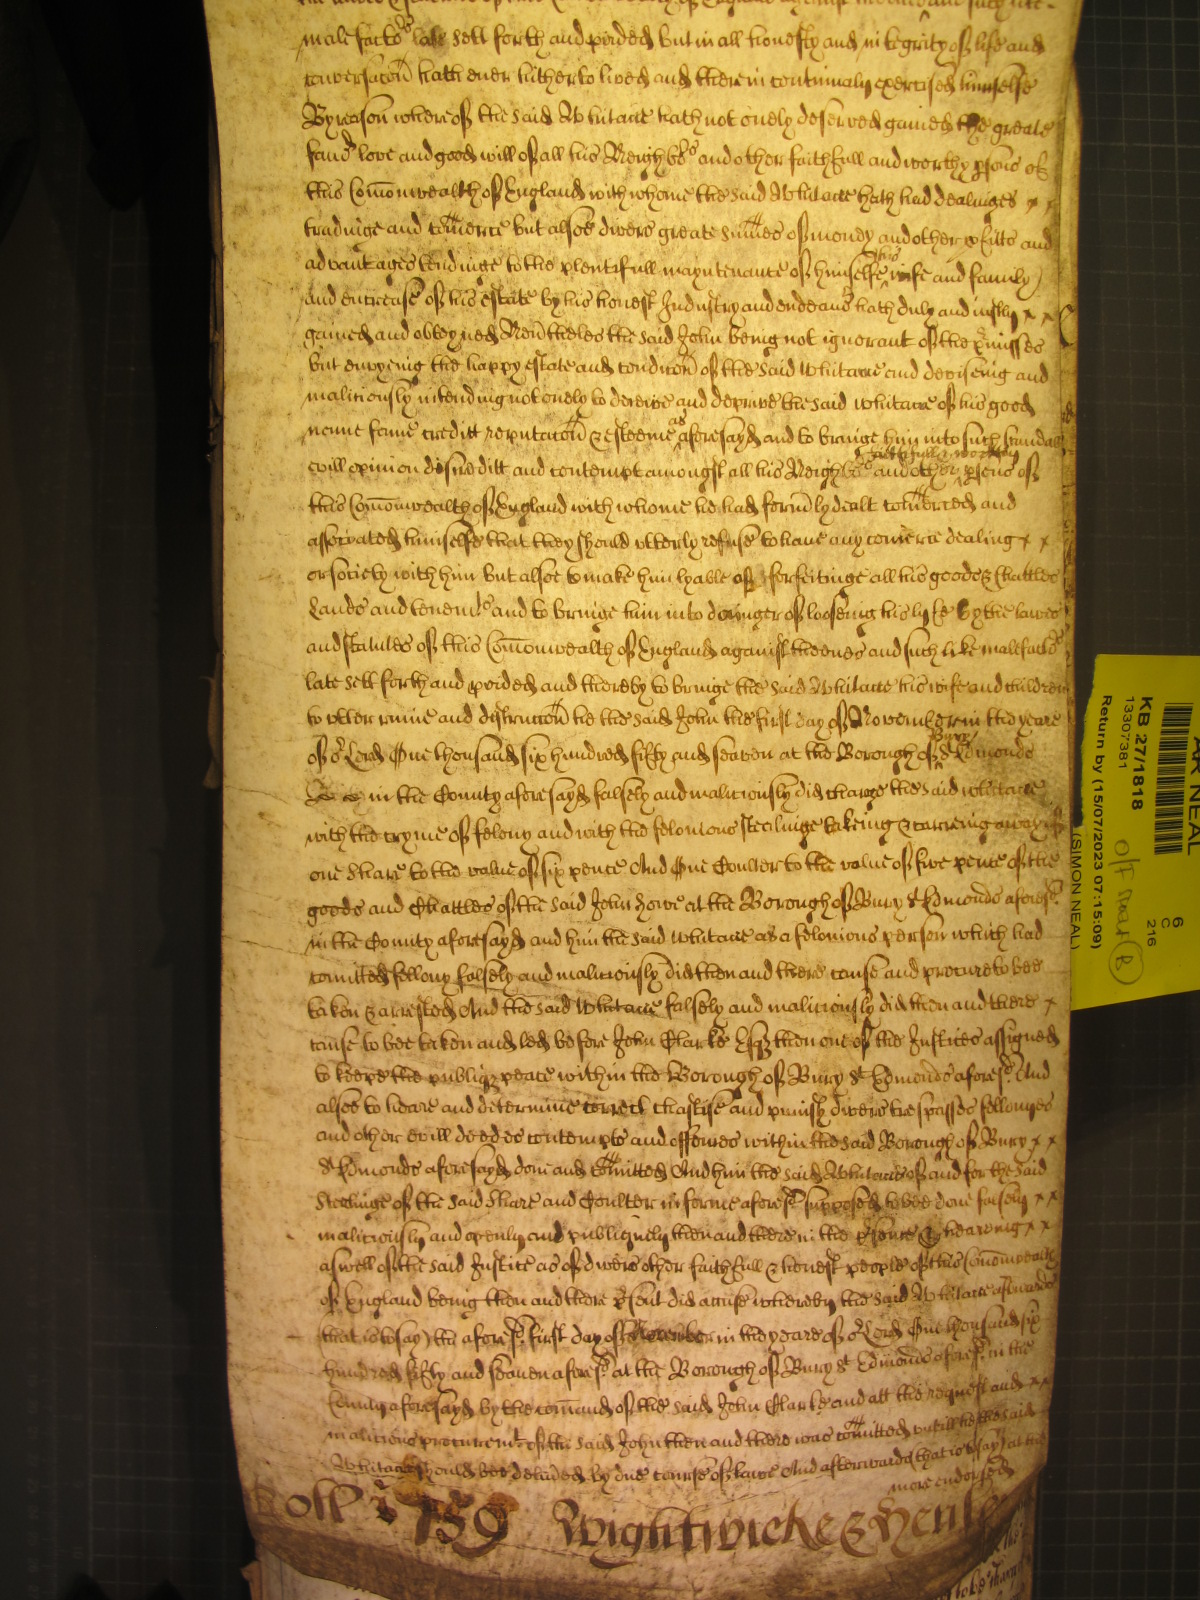 malefactors late sett forth and pvided but in all honesty and integrity of life and
conversacon hath ever hitherto lived and therein continualy exercised himselfe
By reason whereof the said Whitacre hath not onely deserved gained the greate
love and good will of all his Neighbors and other faithfull and worthy psons of
this Comonwealth of England with whome the said Whitacre hath had dealinges x x
tradinge and comerce but alsoe divers greate sumes of money and other pfitts and
advantages tendinge to the plentifull mayntenance of himselfe his wife and family
and encrease of his estate by his honest Industry and endeavor hath duly and justly x x
gained and obteyned Nevertheles the said John being not ignorant of the pmisses
but envyeing the happy estate and condicon of the said Whitacre and deviseing and
malitiously intending not onely to deceive and deprive the said Whitacre of his good
name fame creditt reputacon & esteeme as aforesayd and to bringe him into such scandall
evill opinion discreditt and contempt amongst all his Neighbors and other faithfull & worthy psons of
this Comonwealth of England with whome he had formly dealt comerced and
assotyated himselfe that they should utterly refuse to have any comerce dealing x x
or society with him but alsoe to make him lyable of forfeitinge all his goods & Chattles
Lands and tenemts and to bringe him into daunger of looseing his lyfe by the lawes
and statutes of this Comonwealth of England against theeves and such like malefactors
late sett forth and pvided and thereby to bringe the said Whitacre his wife and children
to utter ruine and distruccon he the said John the first day of November in the yeare
of or Lord One thousand six hundred fifty and seaven at the Borough of Bury St Edmonds
in the County aforesayd falsely and malitiously did charge the said Whitacre
with the cryme of felony and with the felonious stealinge takeing & carreing away of
one Share to the value of six pence And One Coulter to the value of five pence of the
goods and Chattles of the said John Howe at the Borough of Bury St Edmonds aforesd
in the County aforesayd and him the said Whitacre as a felonious person which had
comitted fellony falsely and malitiously did then and there cause and procure to bee
taken & arrested And the said Whitacre falsely and malitiously did then and there x
cause to bee taken and led before John Clarke Esq then one of the Justices assigned
to keepe the publiq peace within the Borough of Bury St Edmonds aforesd And
alsoe to heare and determine correct chastise and punish divers trespasses fellonyes
and other evill deedes contempts and offences within the said Borough of Bury x x
St Edmonds aforesayd don and comitted And him the said Whitacre of and for the said
Stealinge of the said Share and Coulter in forme aforesd supposed to bee done falsely x x
malitiously and openly and publiquely then and there in the psence & heareing x x
aswell of the said Justice as of divers other faithfull & honest people of this Comonwealth
of England being then and there psent did accuse whereby the said Whitacre afterwards
(that is to say) the aforesd first day of November in the yeare of or Lord One thousand six
hundred fifty and seaven aforesd at the Borough of Bury St Edmonds aforesd in the
County aforesayd by the comand of the said John Clarke and att the request and x x
malitious procuremt of the said John then and there was comitted untill hee the said
Whitacre should bee delivered by due course of lawe And afterwards (that is to say) at the
more endorsed
Roll 1759 Wightwicke & Henl
AR NEAL
KB 27/1818
13307381
Return by (15/07/2023 07:15:09)
(SIMON NEAL)
6
C
216